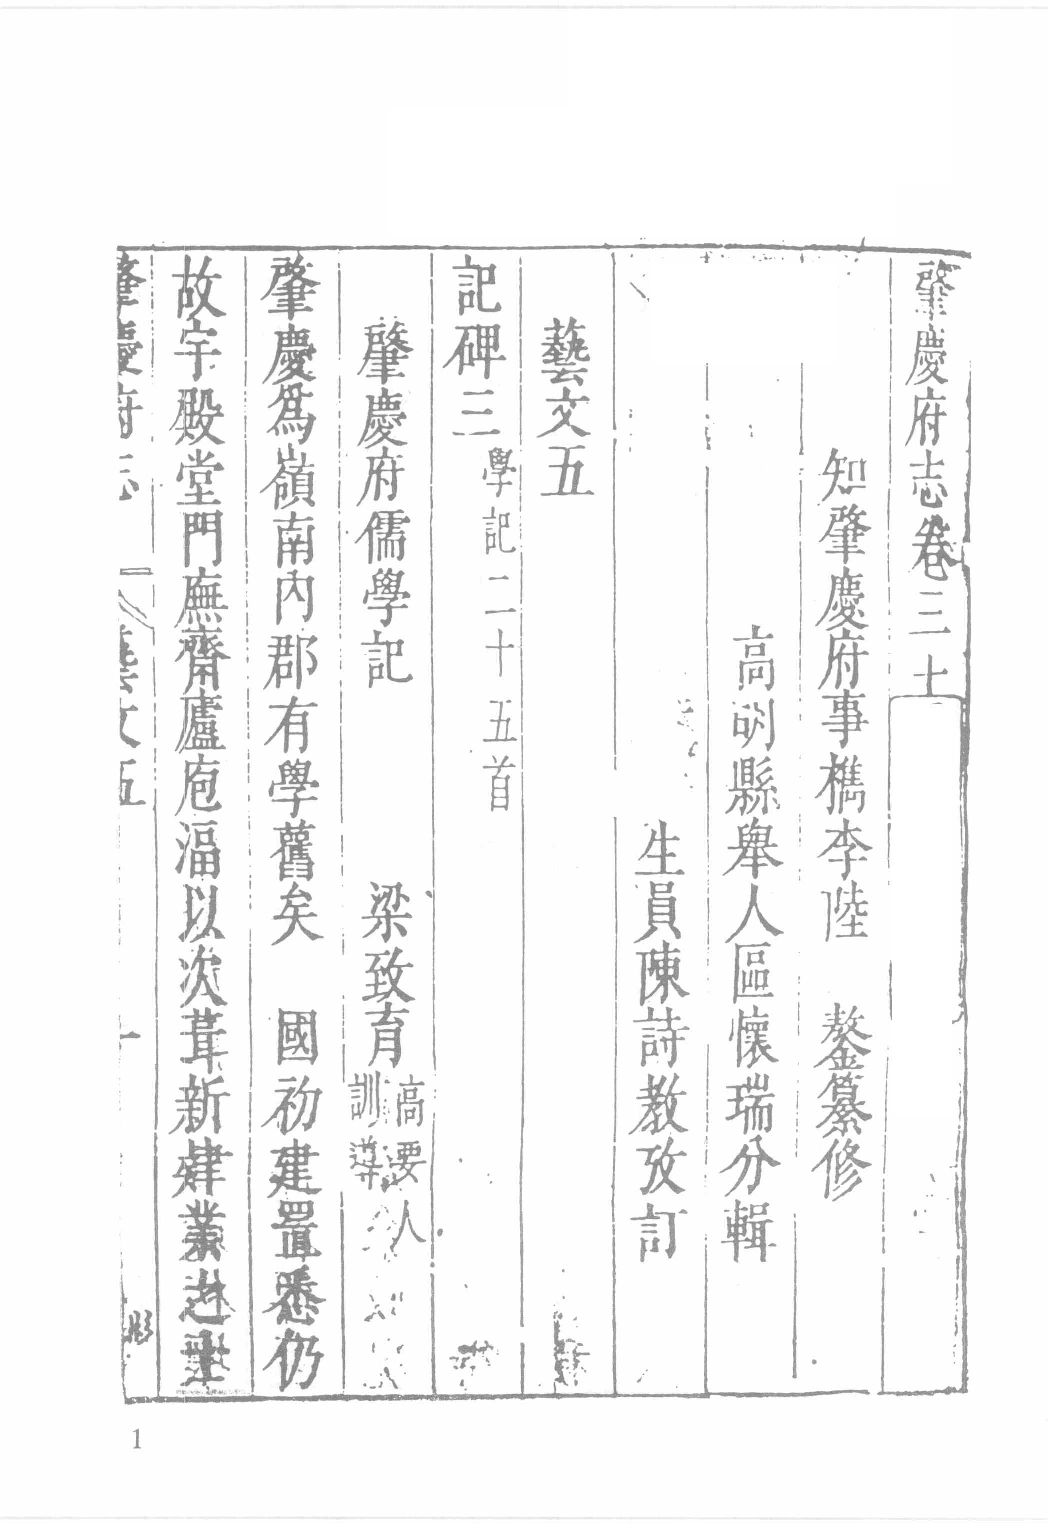 肇慶府志卷三上
知肇慶府事檇李陸 鏊纂修
高明縣舉人區懷瑞分輯
生員陳詩教攷訂
藝文五
記碑三 學記二十五首
肇慶府儒學記 梁致育 高要人 訓導
肇慶爲嶺南內郡有學舊矣 國初建置悉仍
故宇殿堂門廡齋廬庖湢以次葺新肄業之士
肇慶府志 藝文五 一
1